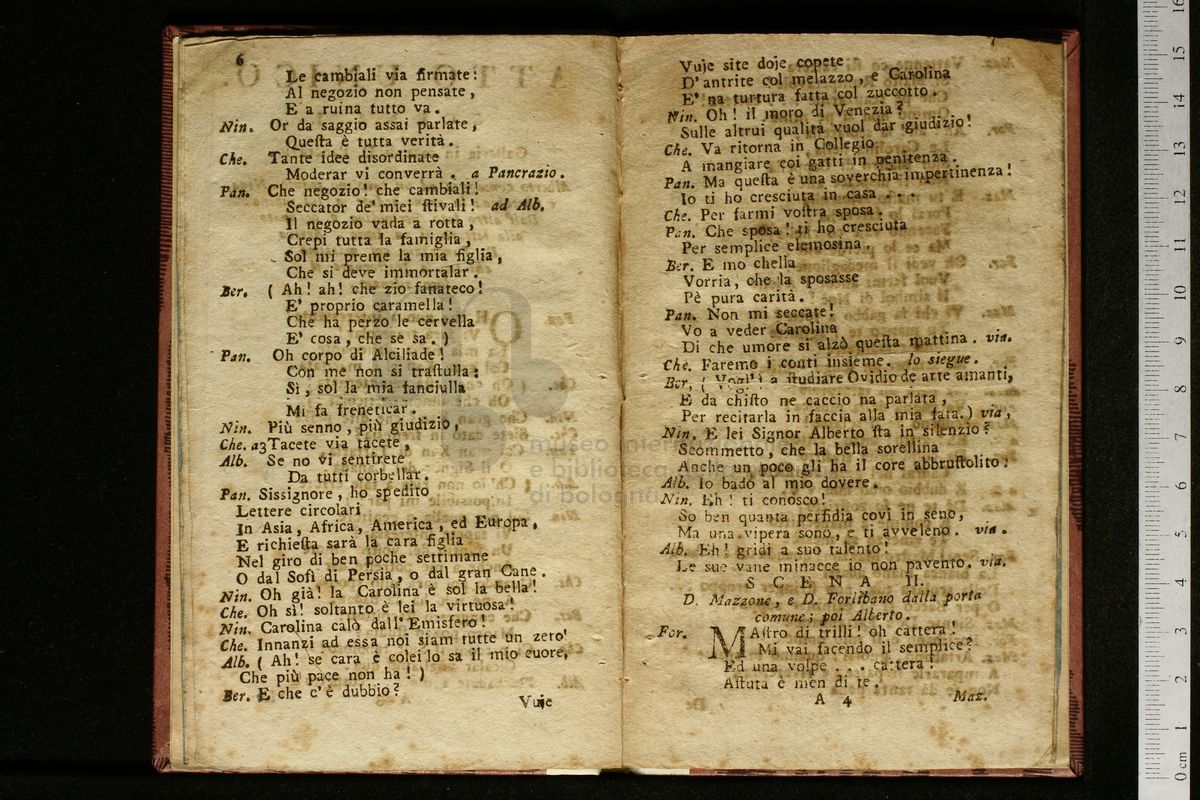 6
Le cambiali via firmate:
Al negozio non pensate,
E a ruina tutto va.
Nin. Or da saggio assai parlate,
Queſta è tutta verità.
Che. Tante idee disordinate
Moderar vi converrà. a Pancrazio.
Pan. Che negozio! che cambiali!
Seccator de' miei ſtivali! ad Alb.
Il negozio vada a rotta,
Crepi tutta la famiglia,
Sol mi preme la mia figlia,
Che si deve immortalar.
Ber. ( Ah! ah! che zio fanateco!
E' proprio caramella!
Che ha perzo le cervella
E' cosa, che se sa. )
Pan. Oh corpo di Alciliade!
Con me non si traſtulla:
Sì, sol la mia fanciulla
Mi fa freneticar.
Nin. Più senno, più giudizio,
Che. a3 Tacete via tacete,
Alb. Se no vi sentirete
Da tutti corbellar.
Pan. Sissignore, ho spedito
Lettere circolari
In Asia, Africa, America, ed Europa,
E richieſta sarà la cara figlia
Nel giro di ben poche settimane
O dal Sofì di Persia, o dal gran Cane.
Nin. Oh già! la Carolina è sol la bella!
Che. Oh sì! soltanto è lei la virtuosa!
Nin. Carolina calò dall' Emisfero!
Che. Innanzi ad essa noi siam tutte un zero!
Alb. ( Ah! se cara è colei lo sa il mio cuore,
Che più pace non ha! )
Ber. E che c'è dubbio?
Vuje
Vuje site doje copete
D'antrite col melazzo, e Carolina
E' na turtura fatta col zuccotto.
Nin. Oh! il moro di Venezia?
Sulle altrui qualità vuol dar giudizio!
Che. Va ritorna in Collegio
A mangiare coi gatti in penitenza.
Pan. Ma queſta è una soverchia impertinenza!
Io ti ho cresciuta in casa ...
Che. Per farmi voſtra sposa.
Pan. Che sposa! ti ho cresciuta
Per semplice elemosina.
Ber. E mo chella
Vorria, che la sposasse
Pè pura carità.
Pan. Non mi seccate!
Vo a veder Carolina
Di che umore si alzò queſta mattina. via.
Che. Faremo i conti insieme. lo siegue.
Ber. ( a ſtudiare Ovidio de arte amanti,
E da chiſto ne caccio na parlata,
Per recitarla in faccia alla mia fata.) via,
Nin. E lei Signor Alberto ſta in silenzio?
Scommetto, che la bella sorellina
Anche un poco gli ha il core abbruſtolito.
Alb. Io bado al mio dovere.
Nin. Eh! ti conosco!
So ben quanta perfidia covi in seno,
Ma una vipera sono, e ti avveleno. via.
Alb. Eh! gridi a suo talento!
Le sue vane minacce io non pavento. via.
SCENA II.
D. Mazzone, e D. Forlibano dalla porta
comune; poi Alberto.
For. MAſtro di trilli! oh cattera!
Mi vai facendo il semplice?
Ed una volpe ... cattera!
Aſtuta è men di te.
A 4 Maz.
museo
e biblioteca
di bologna
0 cm 1 2 3 4 5 6 7 8 9 10 11 12 13 14 15 16